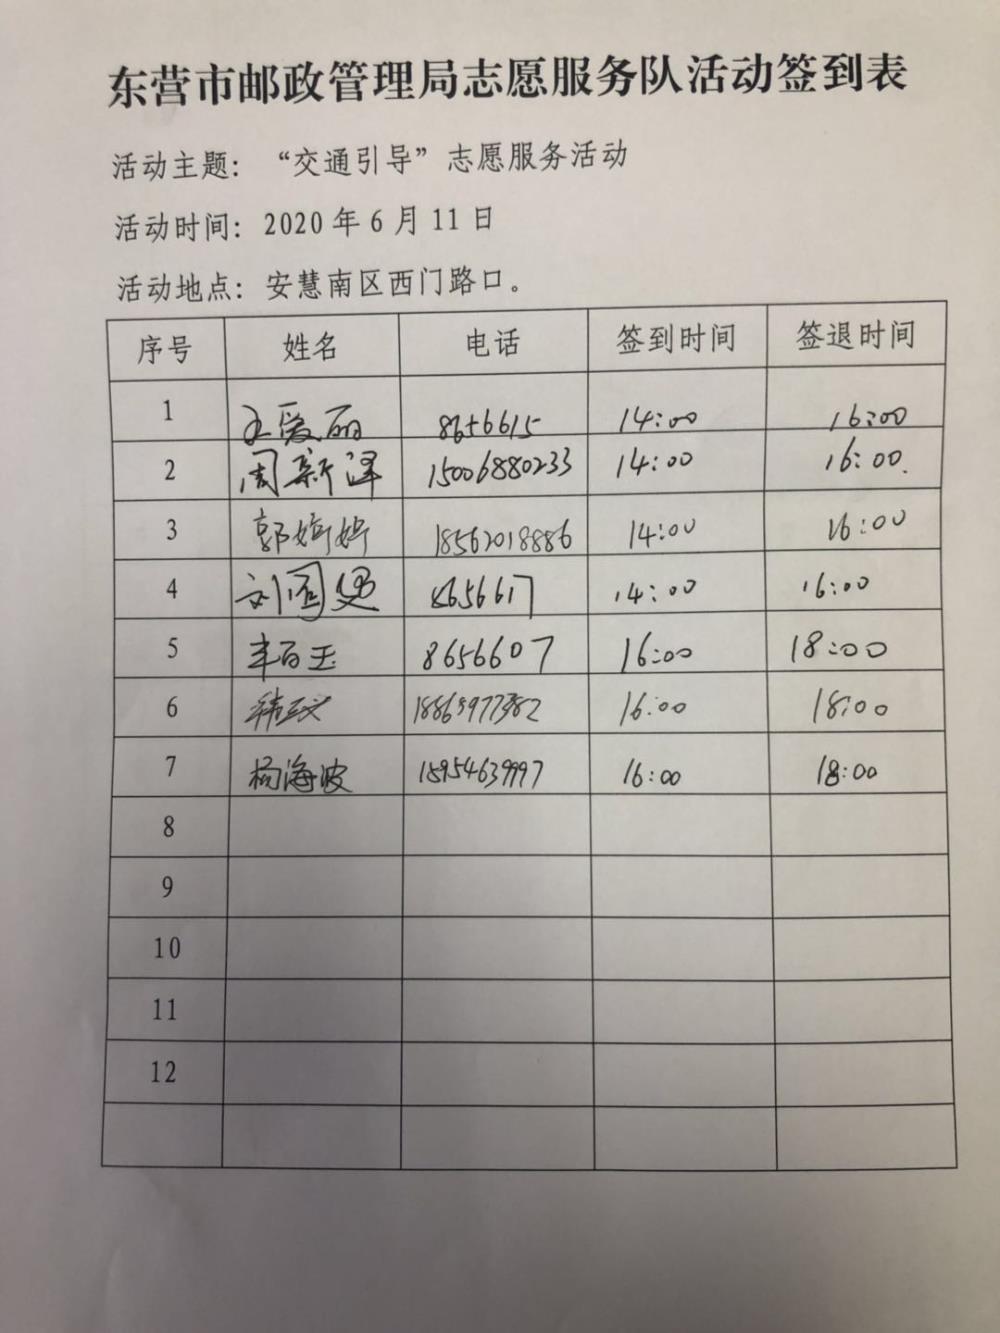 东营市邮政管理局志愿服务队活动签到表
活动主题：“交通引导”志愿服务活动
活动时间：2020年6月11日
活动地点：安慧南区西门路口。
序号 姓名 电话 签到时间 签退时间
1 王爱丽 8656615 14:00 16:00
2 周新泽 15006880233 14:00 16:00.
3 郭婷婷 18562018886 14:00 16:00
4 刘国 8656617 14:00 16:00
5 丰百玉 8656607 16:00 18:00
6 16:00 18:00
7 杨海波 18954639997 16:00 18:00
8
9
10
11
12